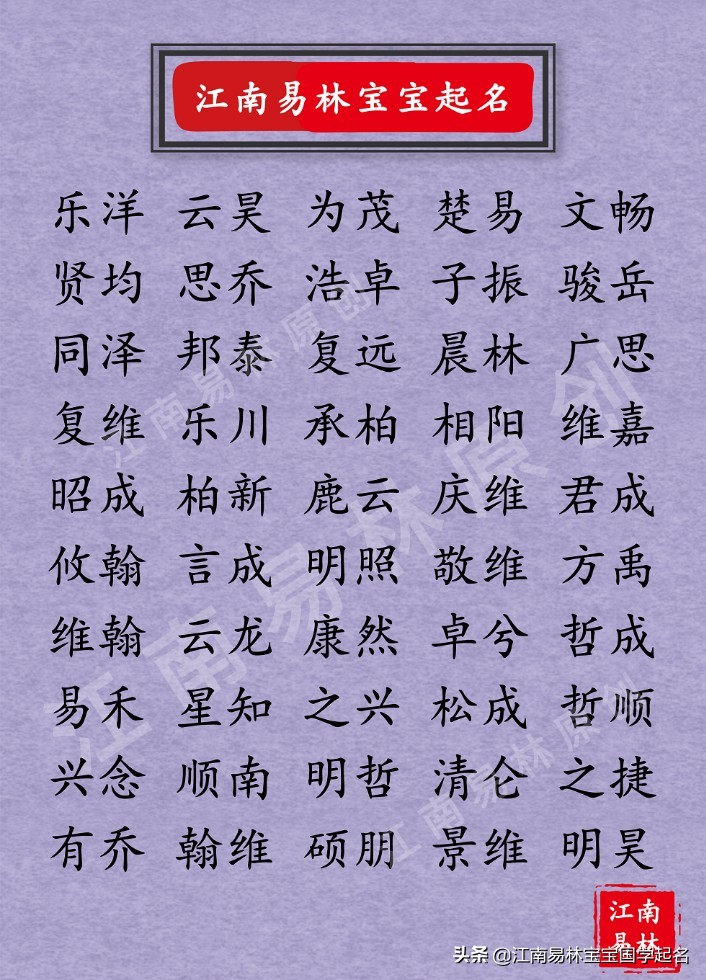 江南易林宝宝起名
乐洋 云昊 为茂 楚易 文畅
贤均 思乔 浩卓 子振 骏岳
同泽 邦泰 复远 晨林 广思
复维 乐川 承柏 相阳 维嘉
昭成 柏新 鹿云 庆维 君成
攸翰 言成 明照 敬维 方禹
维翰 云龙 康然 卓兮 哲成
易禾 星知 之兴 松成 哲顺
兴念 顺南 明哲 清仑 之捷
有乔 翰维 硕朋 景维 明昊
江南易林原创
江南易林原创
江南易林原创
江南
易林
头条 @江南易林宝宝国学起名